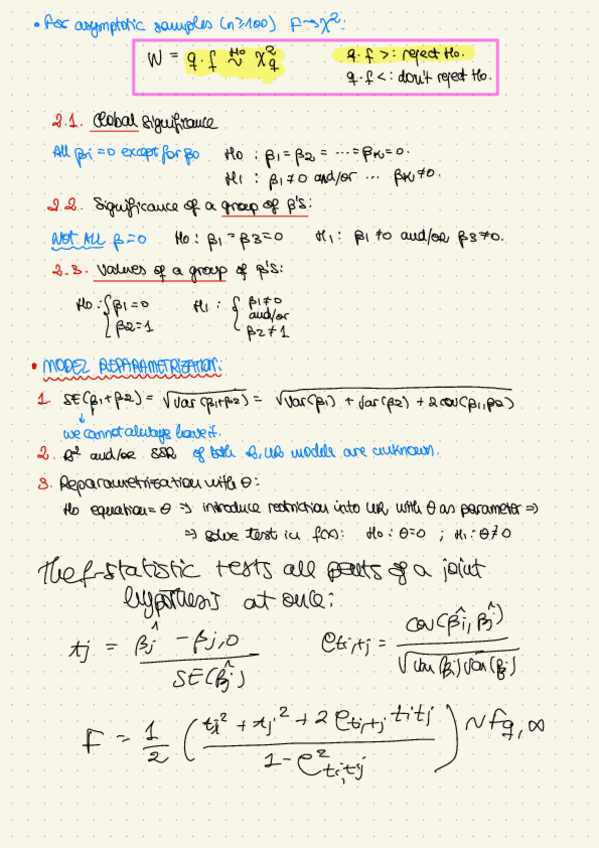 • For asymptotic samples (n≥100) F→χ²:
W = q·f ~H₀ χ²q q·f >: reject H₀.
q·f <: don't reject H₀.
2.1. Global Significance
All βi=0 except for β0 H₀: β1=β2=....=βK=0.
H1: β1≠0 and/or ... βK≠0.
2.2. Significance of a group of β's:
Not All β=0 H₀: β1=β3=0 H1: β1≠0 and/or β3≠0.
2.3. Values of a group of β's:
H₀: { β1=0 H1: { β1≠0
and/or
β2=1 β2≠1
• MODEL REPARAMETRIZATION:
1. SE(β1+β2) = √Var(β1+β2) = √Var(β1) + Var(β2) + 2cov(β1,β2)
↓
we cannot always have it.
2. R² and/or SSR of both R, UR models are unknown.
3. Reparametrization with θ:
H₀ equation=θ ⇒ introduce restriction into UR, with θ as parameter ⇒
⇒ solve test in f(x): H₀: θ=0 ; H1: θ≠0
The f-statistic tests all parts of a joint
hypothesis at once:
tj = (β̂j - βj,0) / SE(β̂j) ρti,tj = cov(β̂i, β̂j) / √var(βi)var(βj)
F = 1/2 ( (ti² + tj² + 2ρti,tj titj) / (1-ρ²ti,tj) ) ~ fq,∞